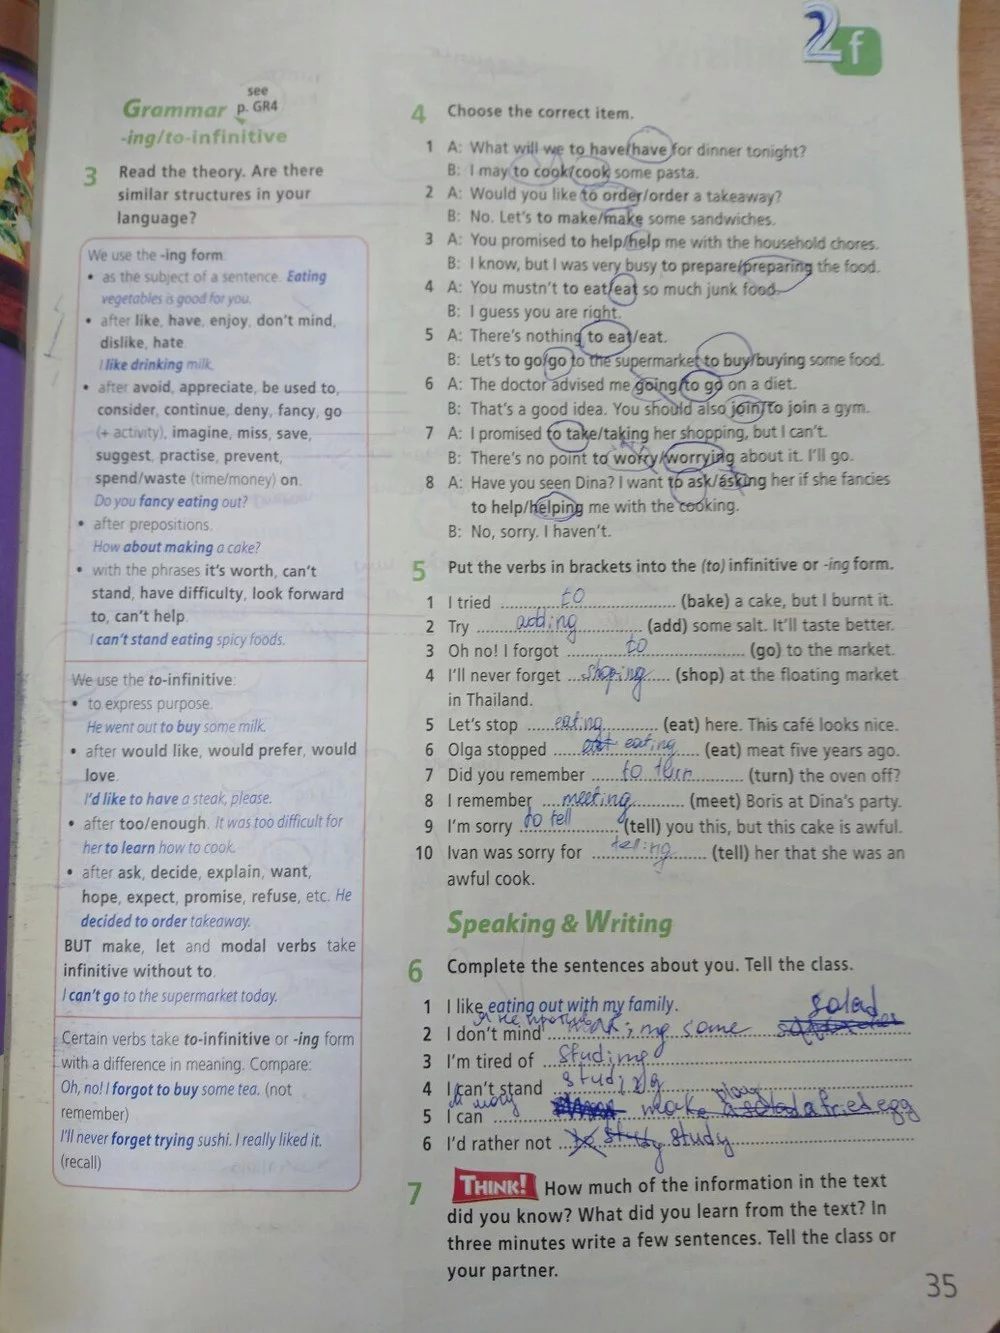 2 f
Grammar see p. GR4
-ing/to-infinitive
3 Read the theory. Are there
similar structures in your
language?
We use the -ing form:
• as the subject of a sentence. Eating
vegetables is good for you.
• after like, have, enjoy, don't mind,
dislike, hate.
I like drinking milk.
• after avoid, appreciate, be used to,
consider, continue, deny, fancy, go
(+ activity), imagine, miss, save,
suggest, practise, prevent,
spend/waste (time/money) on.
Do you fancy eating out?
• after prepositions.
How about making a cake?
• with the phrases it's worth, can't
stand, have difficulty, look forward
to, can't help.
I can't stand eating spicy foods.
We use the to-infinitive:
• to express purpose.
He went out to buy some milk.
• after would like, would prefer, would
love.
I'd like to have a steak, please.
• after too/enough. It was too difficult for
her to learn how to cook.
• after ask, decide, explain, want,
hope, expect, promise, refuse, etc. He
decided to order takeaway.
BUT make, let and modal verbs take
infinitive without to.
I can't go to the supermarket today.
Certain verbs take to-infinitive or -ing form
with a difference in meaning. Compare:
Oh, no! I forgot to buy some tea. (not
remember)
I'll never forget trying sushi. I really liked it.
(recall)
4 Choose the correct item.
1 A: What will we to have/have for dinner tonight?
B: I may to cook/cook some pasta.
2 A: Would you like to order/order a takeaway?
B: No. Let's to make/make some sandwiches.
3 A: You promised to help/help me with the household chores.
B: I know, but I was very busy to prepare/preparing the food.
4 A: You mustn't to eat/eat so much junk food.
B: I guess you are right.
5 A: There's nothing to eat/eat.
B: Let's to go/go to the supermarket to buy/buying some food.
6 A: The doctor advised me going/to go on a diet.
B: That's a good idea. You should also join/to join a gym.
7 A: I promised to take/taking her shopping, but I can't.
B: There's no point to worry/worrying about it. I'll go.
8 A: Have you seen Dina? I want to ask/asking her if she fancies
to help/helping me with the cooking.
B: No, sorry. I haven't.
5 Put the verbs in brackets into the (to) infinitive or -ing form.
1 I tried to (bake) a cake, but I burnt it.
2 Try adding (add) some salt. It'll taste better.
3 Oh no! I forgot to (go) to the market.
4 I'll never forget shoping (shop) at the floating market
in Thailand.
5 Let's stop eating (eat) here. This café looks nice.
6 Olga stopped eating (eat) meat five years ago.
7 Did you remember to turn (turn) the oven off?
8 I remember meeting (meet) Boris at Dina's party.
9 I'm sorry to tell (tell) you this, but this cake is awful.
10 Ivan was sorry for telling (tell) her that she was an
awful cook.
Speaking & Writing
6 Complete the sentences about you. Tell the class.
1 I like eating out with my family.
salad
я не против
2 I don't mind some
3 I'm tired of studing
4 I can't stand studing
я могу play
5 I can make a fried egg
6 I'd rather not study study
7 THINK! How much of the information in the text
did you know? What did you learn from the text? In
three minutes write a few sentences. Tell the class or
your partner.
35